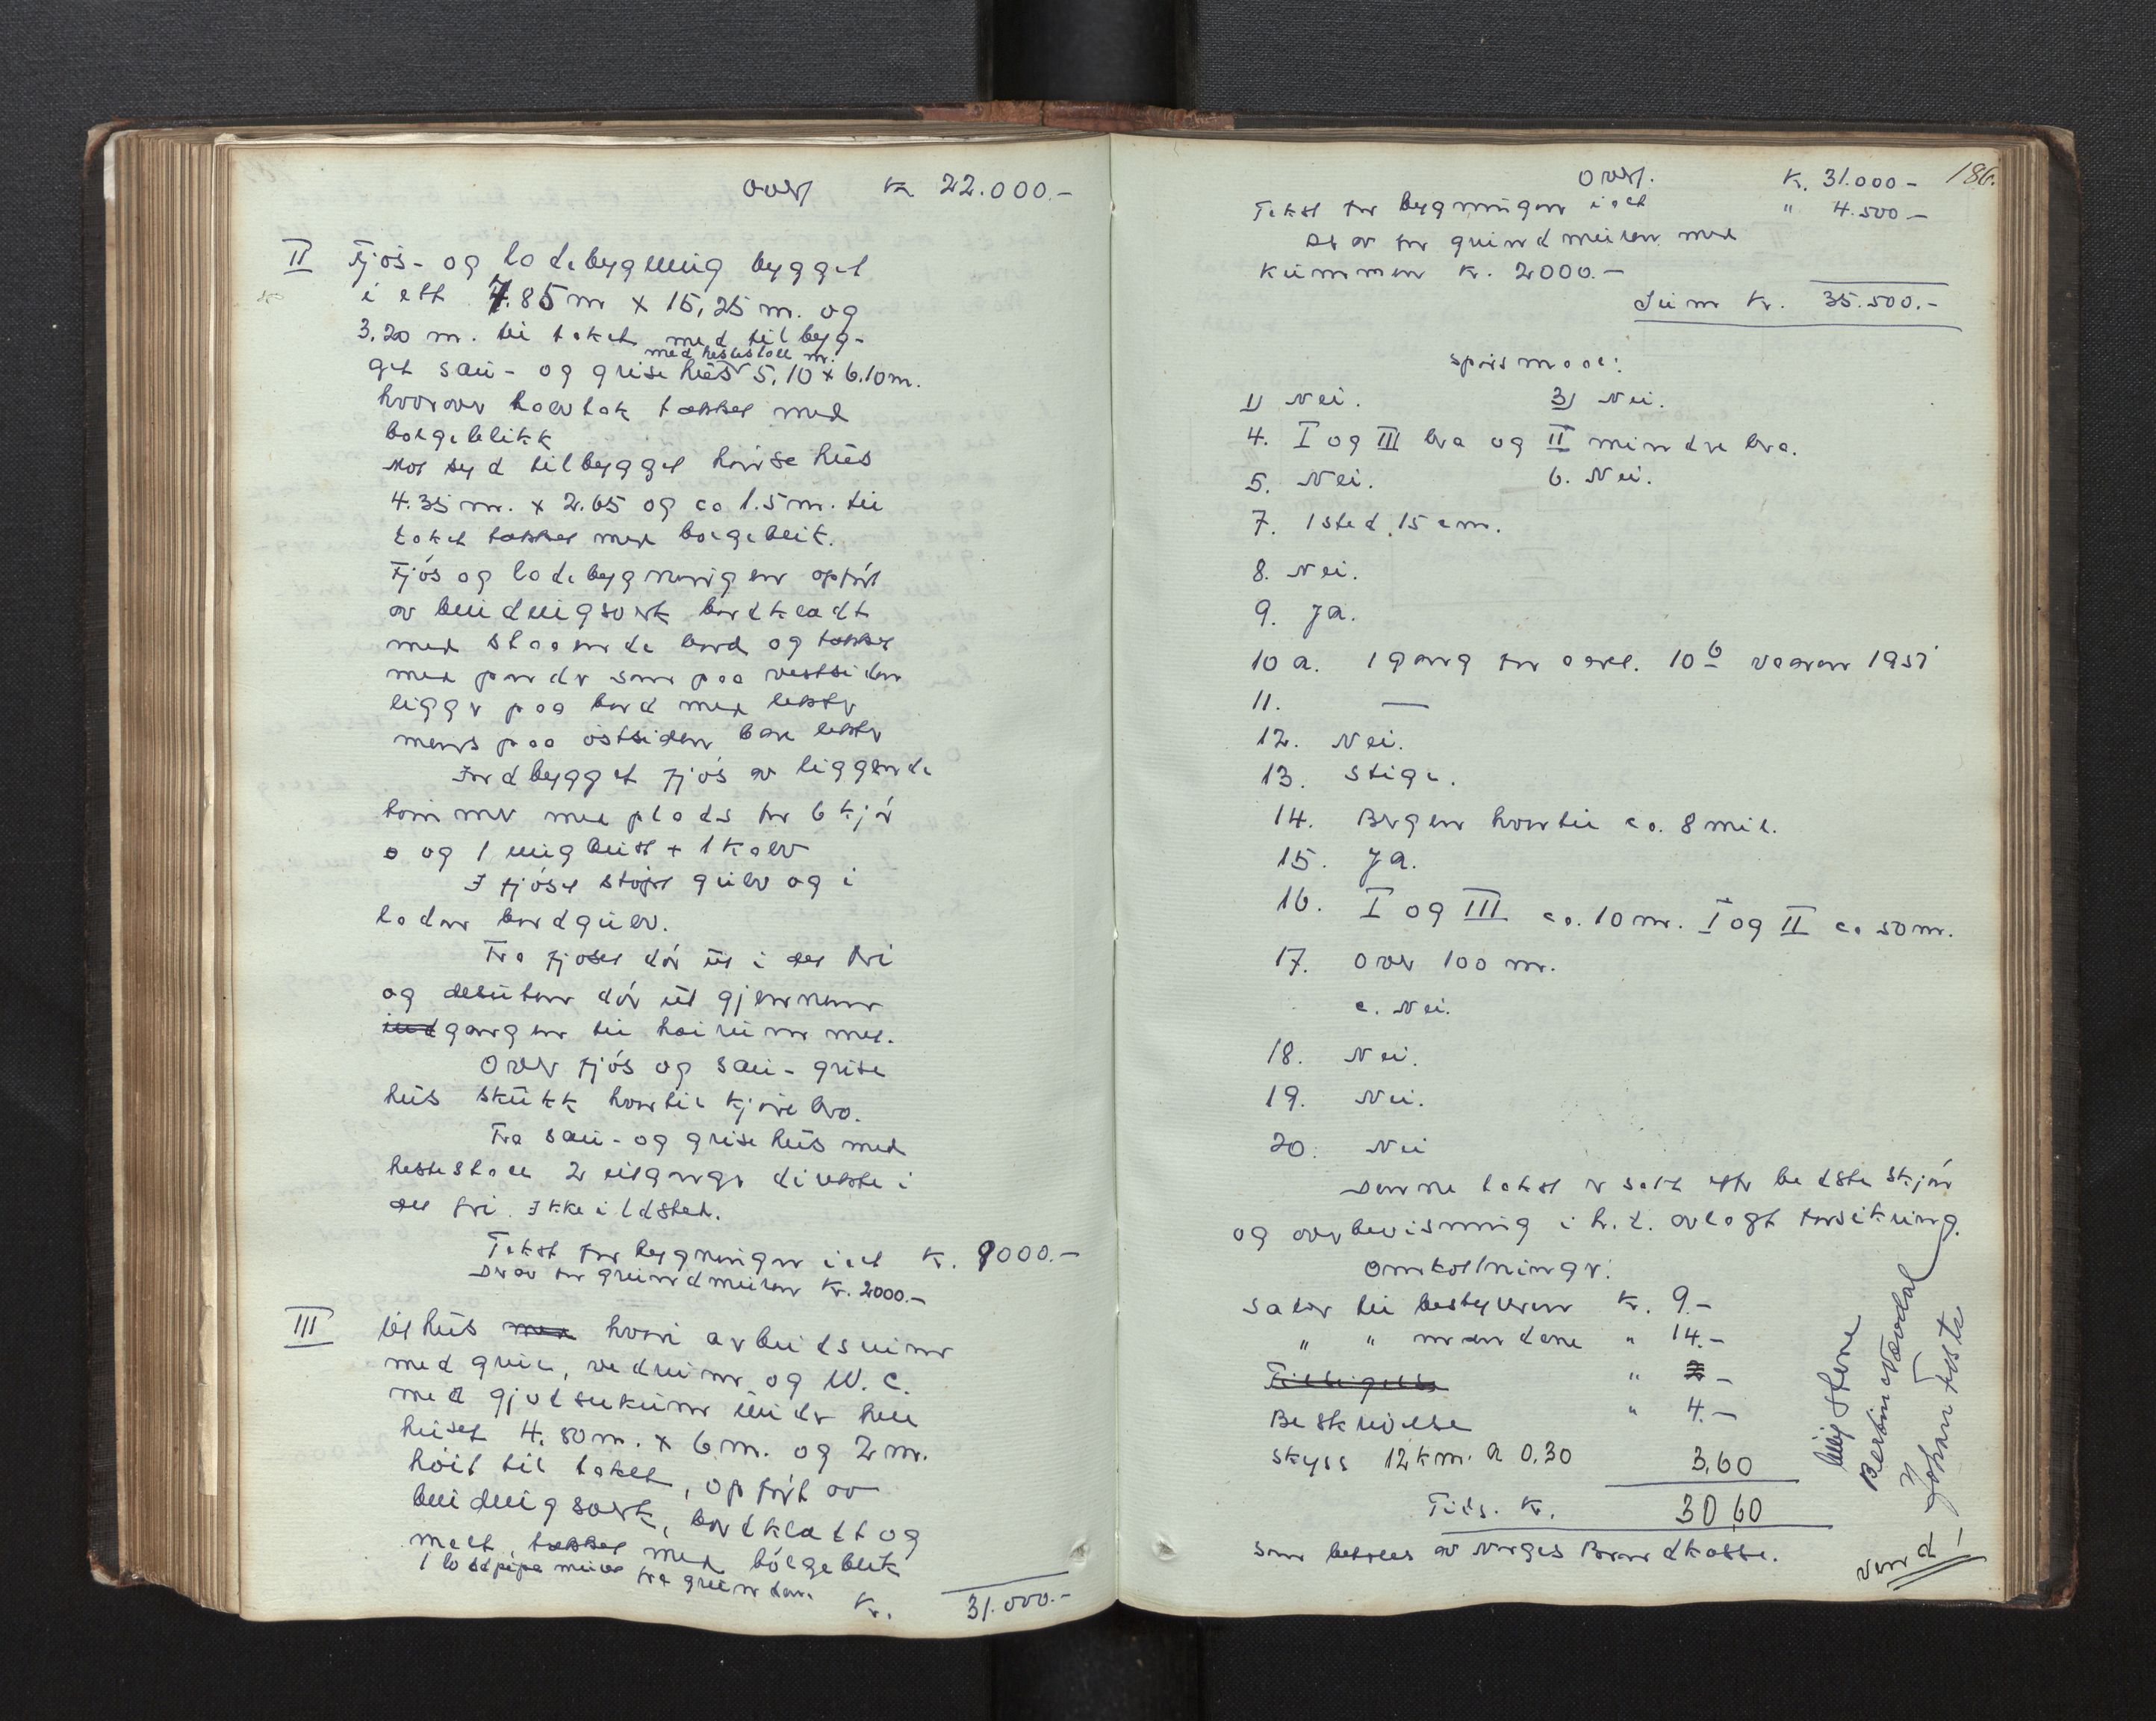 overf Kr 22.000.-
II Fjös- og ladebygning bygget
i ett 7.85 m x 15,25 m. og
3.20 m. til taket med tilbyg-
med hestestall m.
get sau- og grisehus 5,10 x 6.10 m.
hvorover halvtak tækket med
bølgeblikk
Mot syd tilbygget hønsehus
4.35 m. x 2.65 og ca 1.5 m. til
taket tækket med bølgeblik.
Fjøs og ladebygningen opført
av bindingsverk bordklædt
med staaende bord og tækket
med panner som paa vestsiden
ligger paa bord med lekter
mens paa østsiden bare lekter
Indbygget fjøs av liggende
tømmer med plads for 6 kjør
og 1 ungbeist + 1 kalv
I fjøset støpt gulv og i
laden bordgulv.
Fra fjøset dör ut i det fri
og desuten dör ut gjennem
indgangen til høirummet.
Over fjøs og sau- grise
hus stukk hvortil kjørebro.
Fra sau- og grisehus med
hestestall 2 utganger direkte i
det fri. Ikke ildsted.
Takst for bygningen i alt Kr. 9000.-
Derav for grundmuren Kr. 2000.-
III Uthus med hvori arbeidsrum
med grue, vedrum og W.C.
med gjødselkum under hele
huset 4.80 m. x 6 m. og 2 m.
höit til taket, opført av
bindingsverk, bordklædt og
malt, tækket med bölgeblik
1 lodpipe muret fra grunden.
Kr. 31.000.-
186.
overf. K. 31.000-
Takst for bygningen i alt " 4.500-
Derav for grundmuren med
kummen Kr. 2000.-
Sum Kr. 35.500.-
Spørsmaal:
1) Nei. 3) Nei.
4. I og III bra og II mindre bra.
5. Nei. 6. Nei.
7. 1 sted. 15 cm.
8. Nei.
9. Ja.
10 a. 1 gang for aarl. 10 b vaaren 1951
11. —
12. Nei.
13. Stige.
14. Bergen hvortil ca. 8 mil.
15. Ja.
16. I og III ca. 10 m. I og II ca 50 m.
17. Over 100 m.
c. Nei.
18. Nei.
19. Nei.
20. Nei
Denne takst er satt efter bedste skjøn
og overbevisning i h.t. avlagt forsikring.
Omkostninger:
Salær til bestyreren Kr. 9.-
" " mændene " 14.-
" -
Beskrivelse " 4.-
Skyss 12 km. a 0.30 3,60
Tils. Kr. 30 60
som betales av Norges Brandkasse.
Bertin Nævdal
Johan Toste
vend -